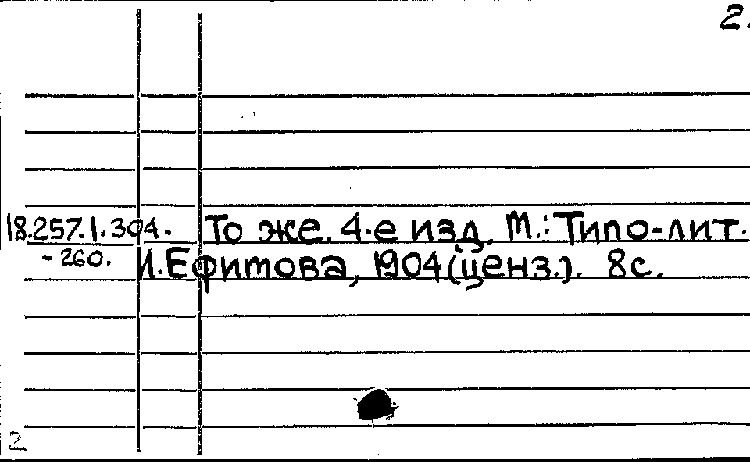 2.
18.257.1.304. То же. 4-е изд. М.: Типо-лит.
-260. И.Ефимова, 1904 (ценз.). 8с.
2